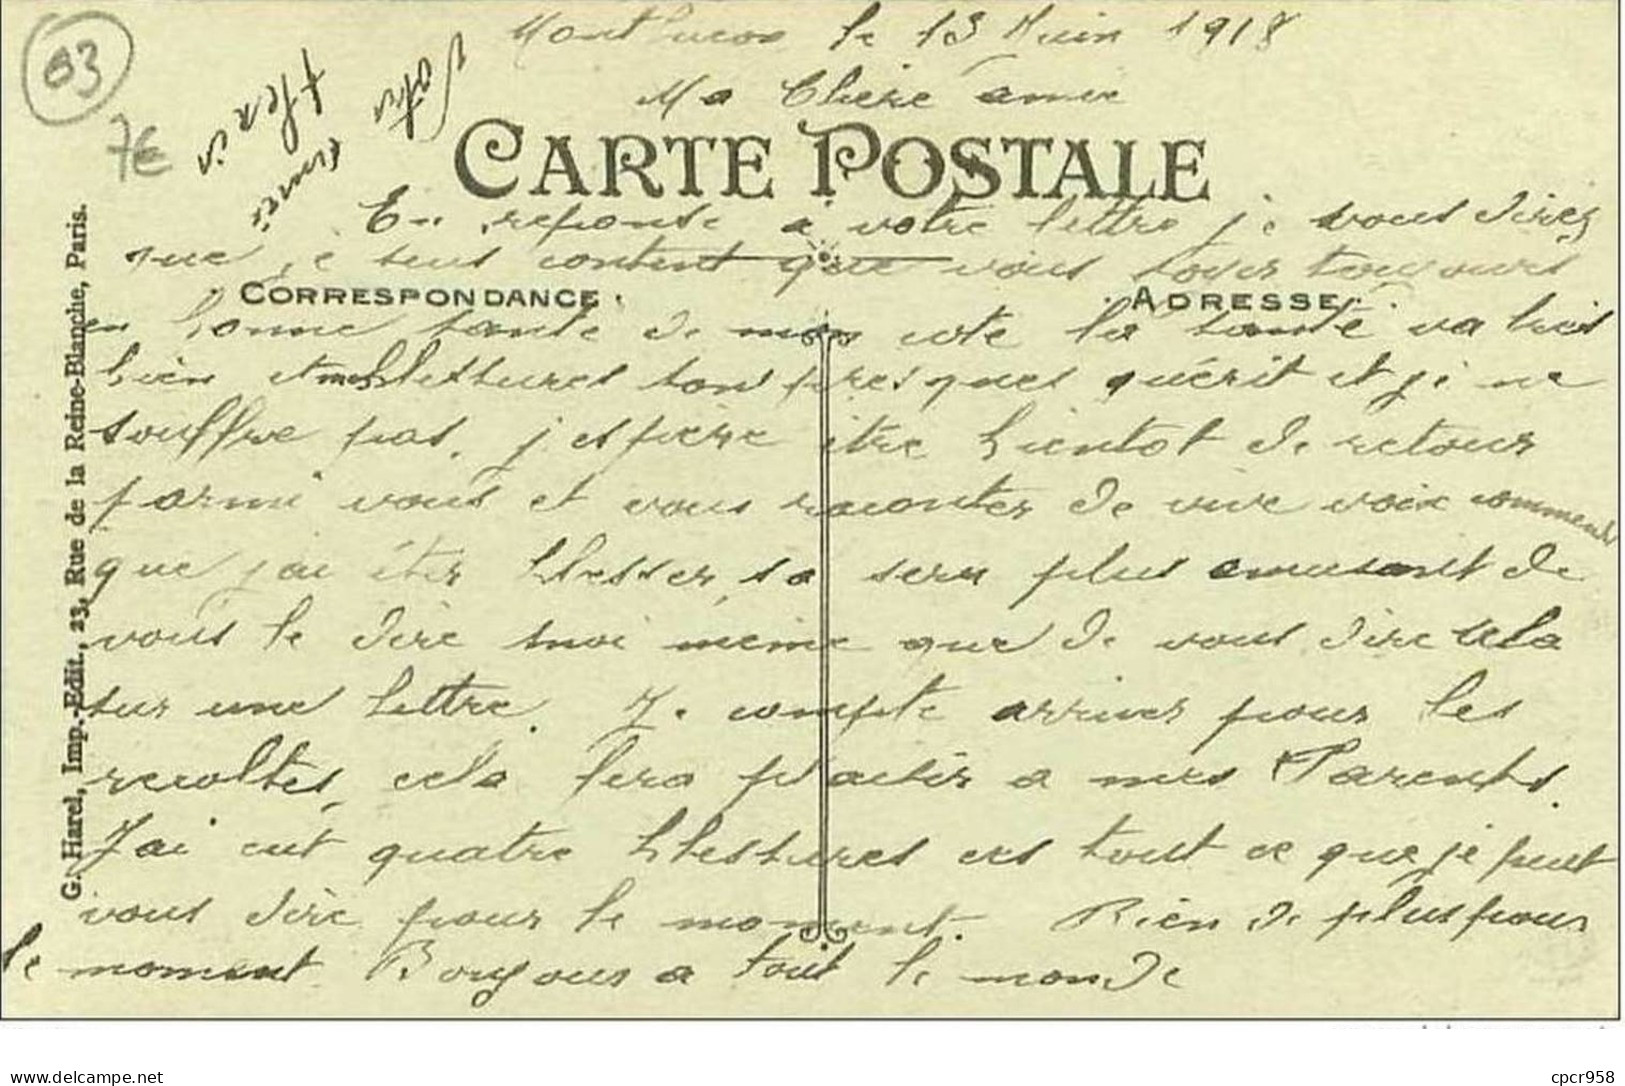 03
7€
Montlucon le 13 Juin 1918
Ma Chère amie
CARTE POSTALE
En reponse a votre lettre je vous direz
que je suis content que vous soyer toujours
CORRESPONDANCE
ADRESSE
en bonne sante de mon cote la santé va tres
bien et mes blessures son presques guérit et je ne
souffre pas. j espère être bientot de retour
parmi vous et vous raconter de vive voix comment
que j ai éter blesser, sa sera plus amusant de
vous le dire moi même que de vous dire cela
sur une lettre. Je compte arriver pour les
recoltes, cela fera plaisir a mes Parents.
J'ai eut quatre blessures ces tout ce que je peut
vous dire pour le moment. Rien de plus pour
le moment Bonjour a tout le monde
Votre
ami
G. Harel, Imp.-Edit., 23, Rue de la Reine-Blanche, Paris.
www.delcampe.net
cpcr958